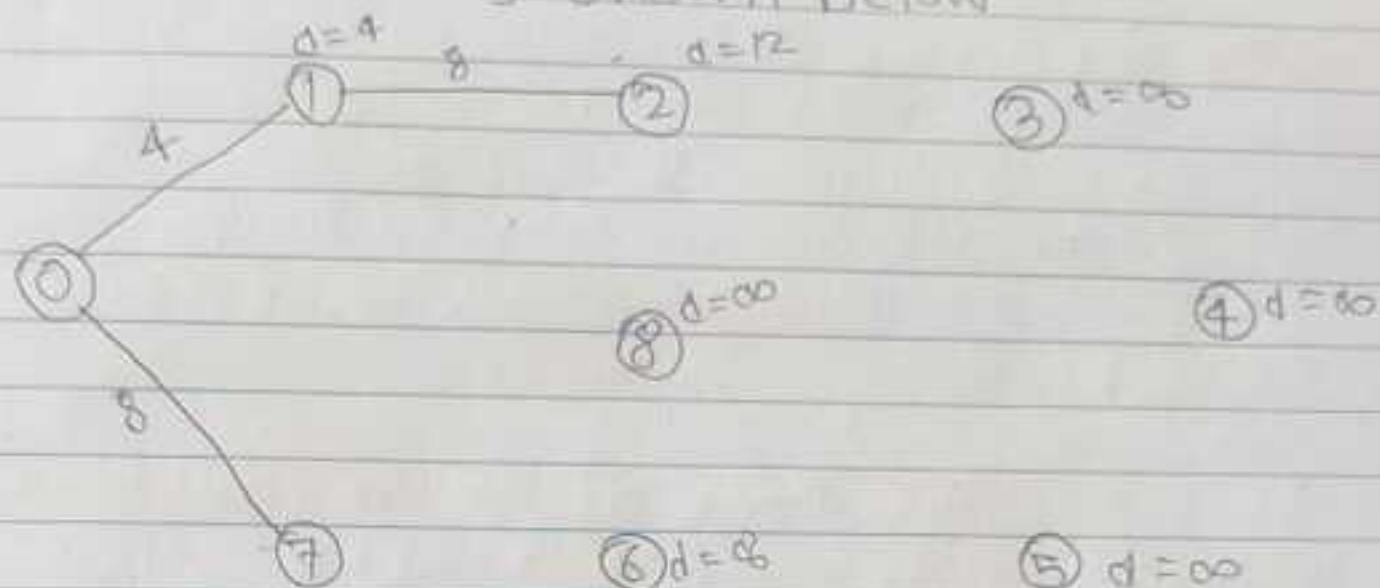 BELOW
d=4 8 d=12
① ② ③ d=∞
4
⓪ ⑧ d=∞ ④ d=∞
8
⑦ ⑥ d=∞ ⑤ d=∞